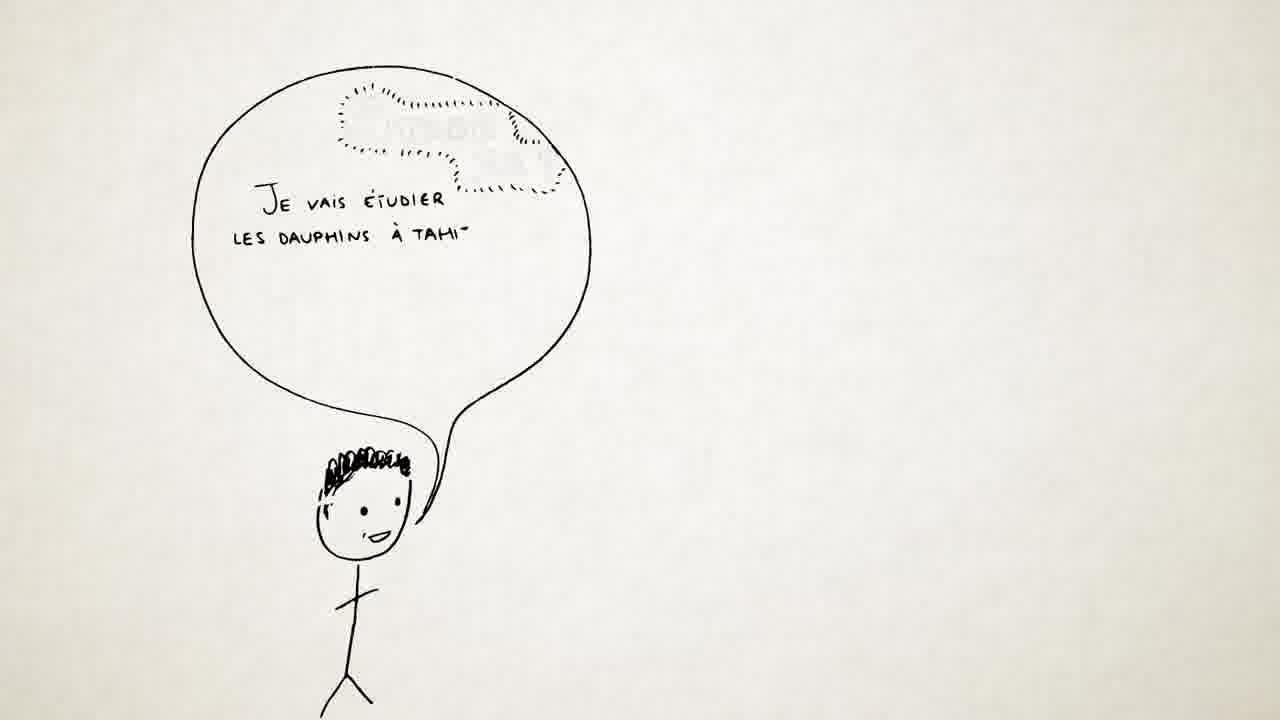 JE VAIS ÉTUDIER
LES DAUPHINS À TAHI